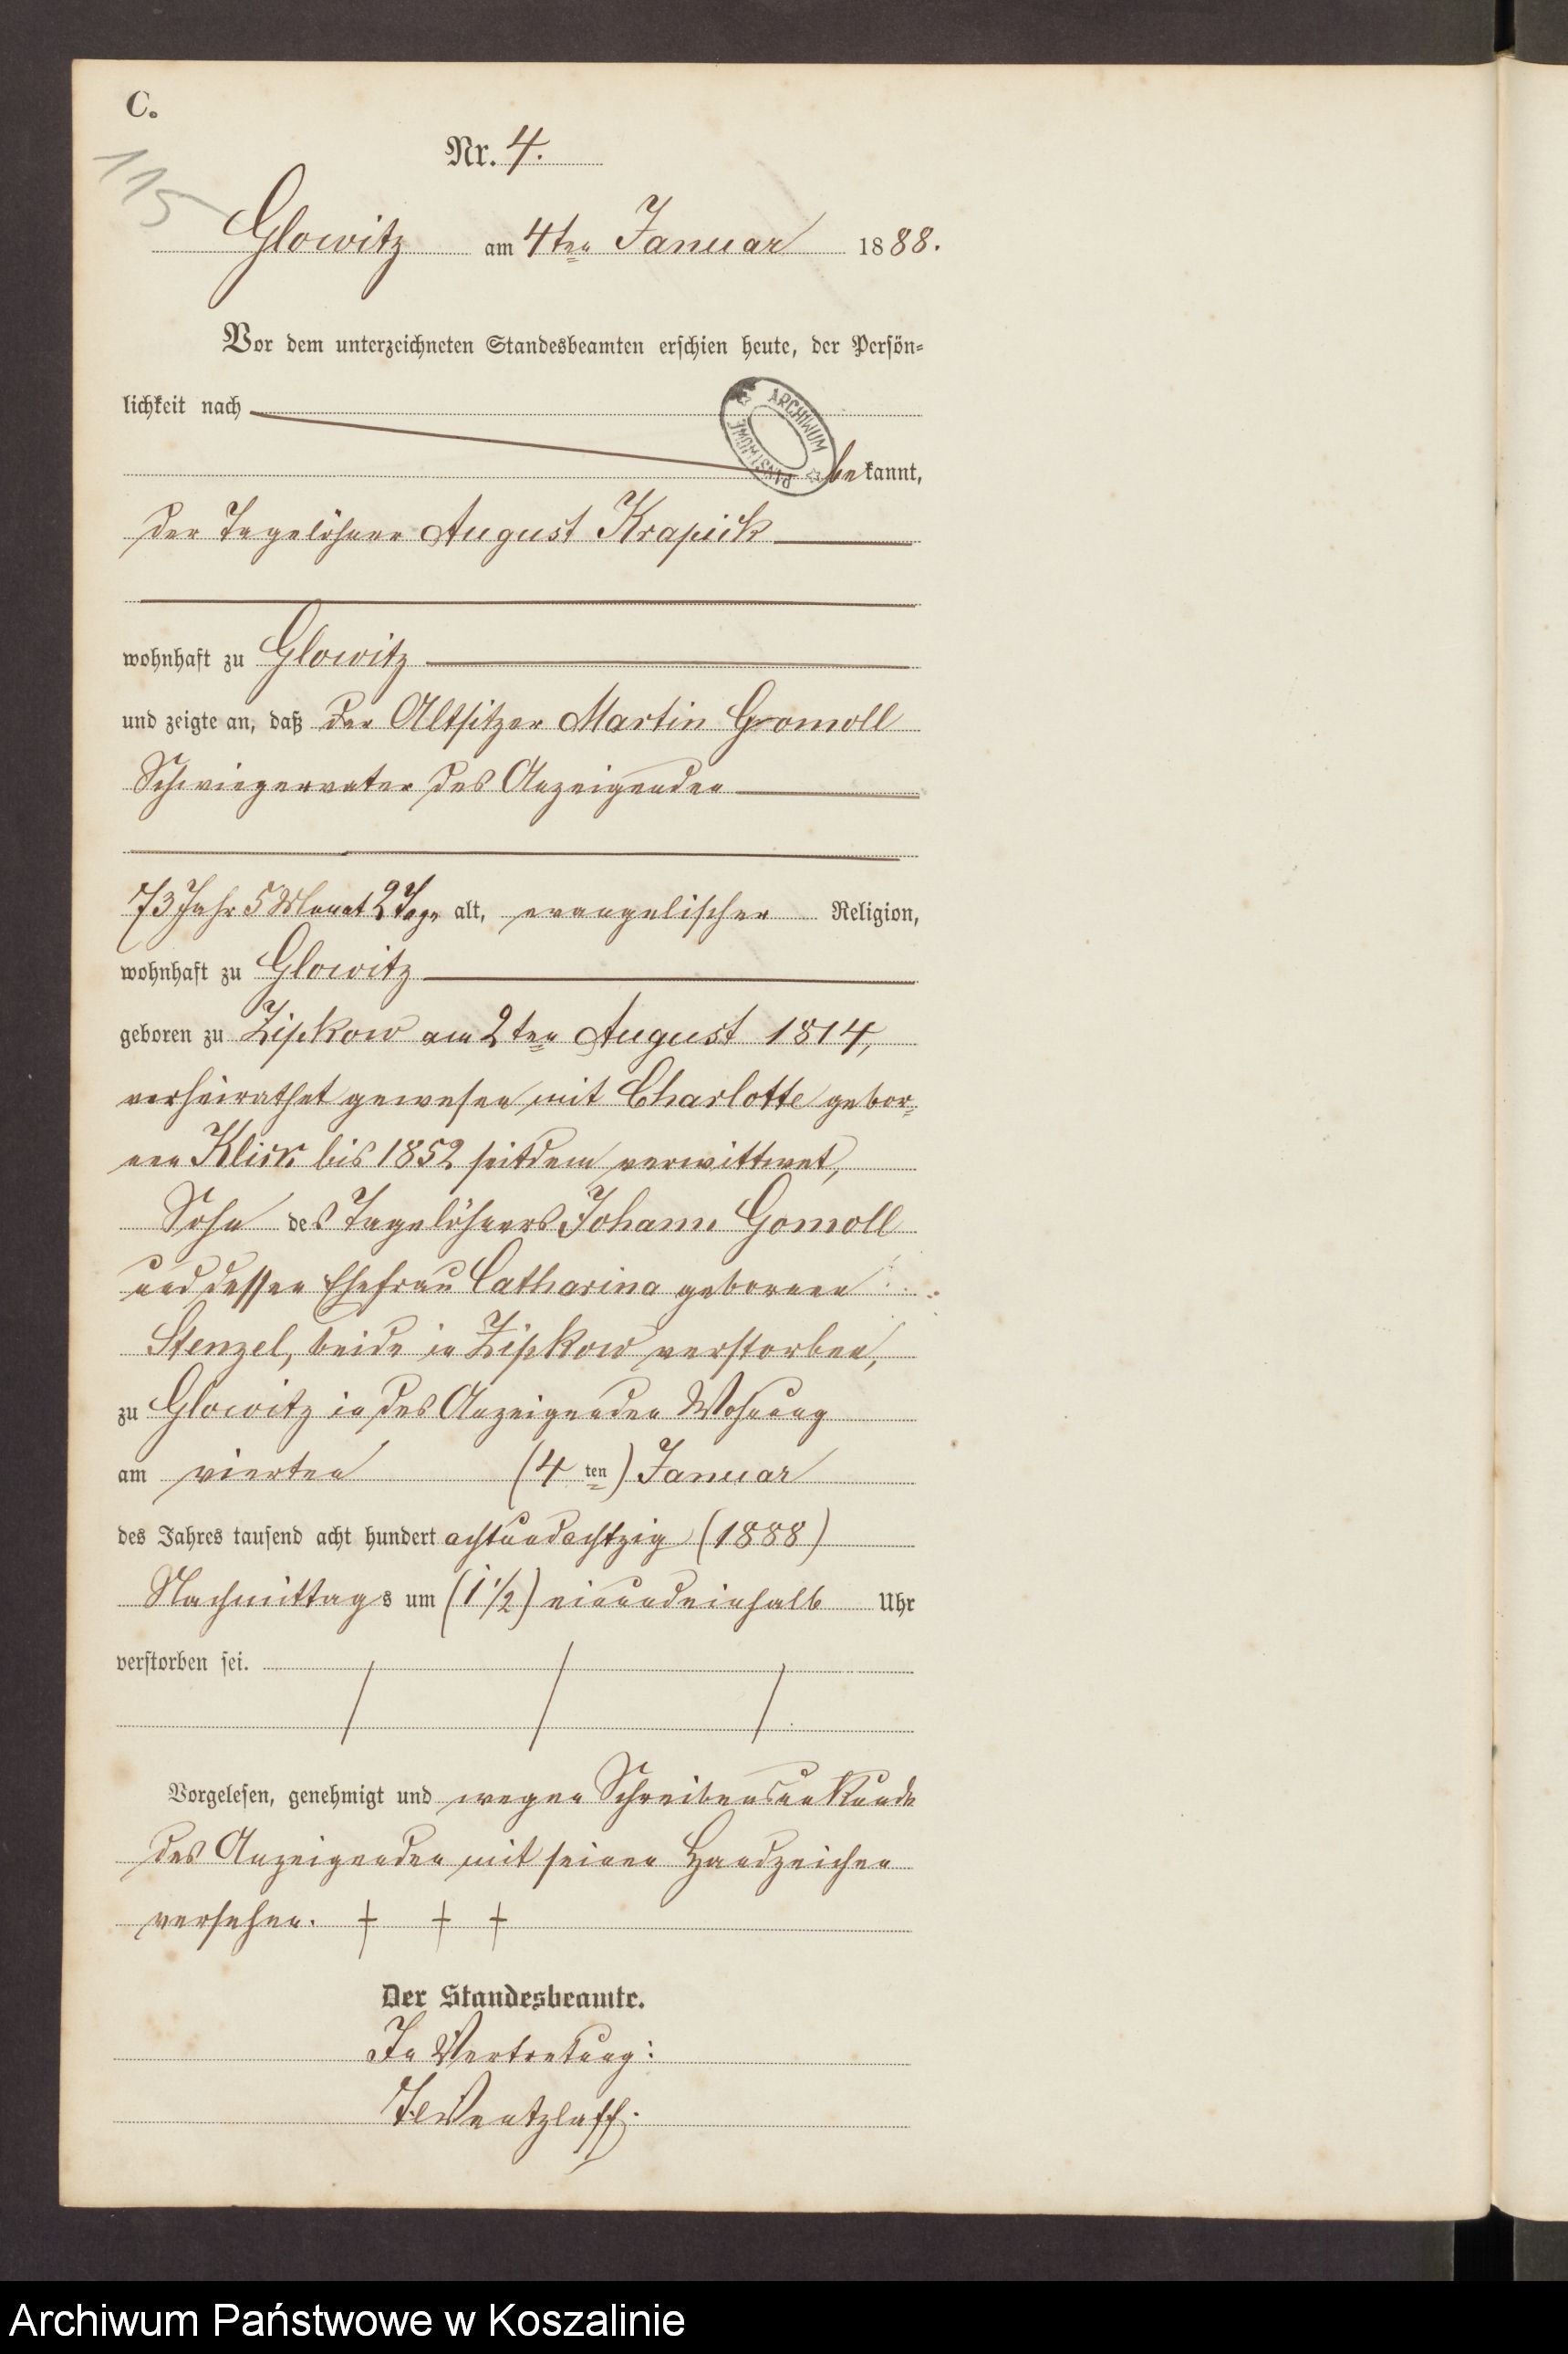 C.
115
Nr. 4.
Glowitz am 4ten Januar 1888.
Vor dem unterzeichneten Standesbeamten erschien heute, der Persön-
lichkeit nach
ARCHIWUM PAŃSTWOWE
bekannt,
der Tagelöhner August Krapick
wohnhaft zu Glowitz
und zeigte an, daß der Altsitzer Martin Gomoll
Schwiegervater des Anzeigenden
73 Jahr 5 Monat 2 Tage alt, evangelischer Religion,
wohnhaft zu Glowitz
geboren zu Zipkow am 2ten August 1814,
verheirathet gewesen mit Charlotte gebor-
nen Klick bis 1852 seitdem verwittwet,
Sohn des Tagelöhners Johann Gomoll
und dessen Ehefrau Catharina geborenen
Stenzel, beide in Zipkow verstorben,
zu Glowitz in des Anzeigenden Wohnung
am vierten (4ten) Januar
des Jahres tausend acht hundert achtundachtzig (1888)
Nachmittags um (1 1/2) einundeinhalb Uhr
verstorben sei.
Vorgelesen, genehmigt und wegen Schreibensunkunde
des Anzeigenden mit seinen Handzeichen
versehen. + + +
Der Standesbeamte.
In Vertretung:
Wentzlaff.
Archiwum Państwowe w Koszalinie